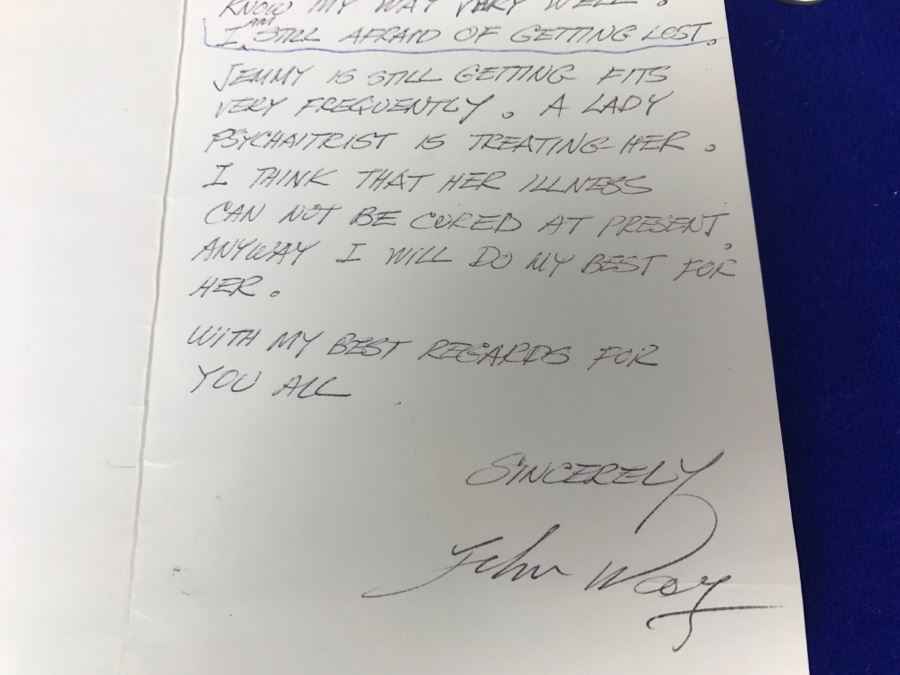 KNOW MY WAY VARY WELL.
I AM STILL AFRAID OF GETTING LOST.
JEMMY IS STILL GETTING FITS
VERY FREQUENTLY. A LADY
PSYCHAITRIST IS TREATING HER.
I THINK THAT HER ILLNESS
CAN NOT BE CURED AT PRESENT.
ANYWAY I WILL DO MY BEST FOR
HER.
WITH MY BEST REGARDS FOR
YOU ALL
SINCERELY
John